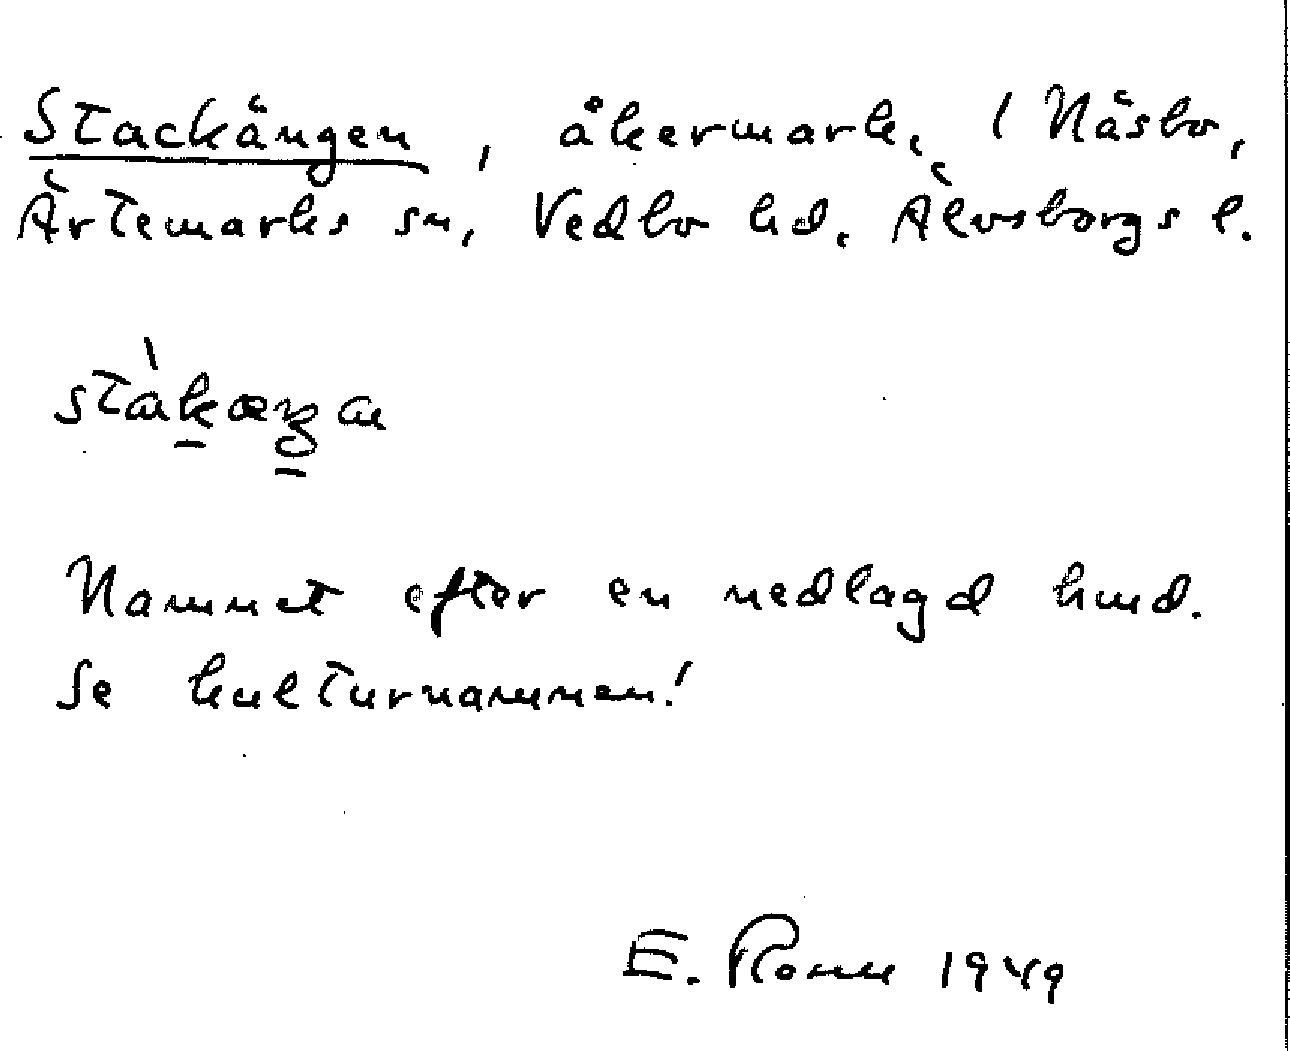 Stackängen, åkermark, i Näsbo,
Ärtemarks sn, Vedbo hd. Älvsborgs l.
Namnet efter en nedlagd hmd.
Se kulturnamnen!
E. 1949